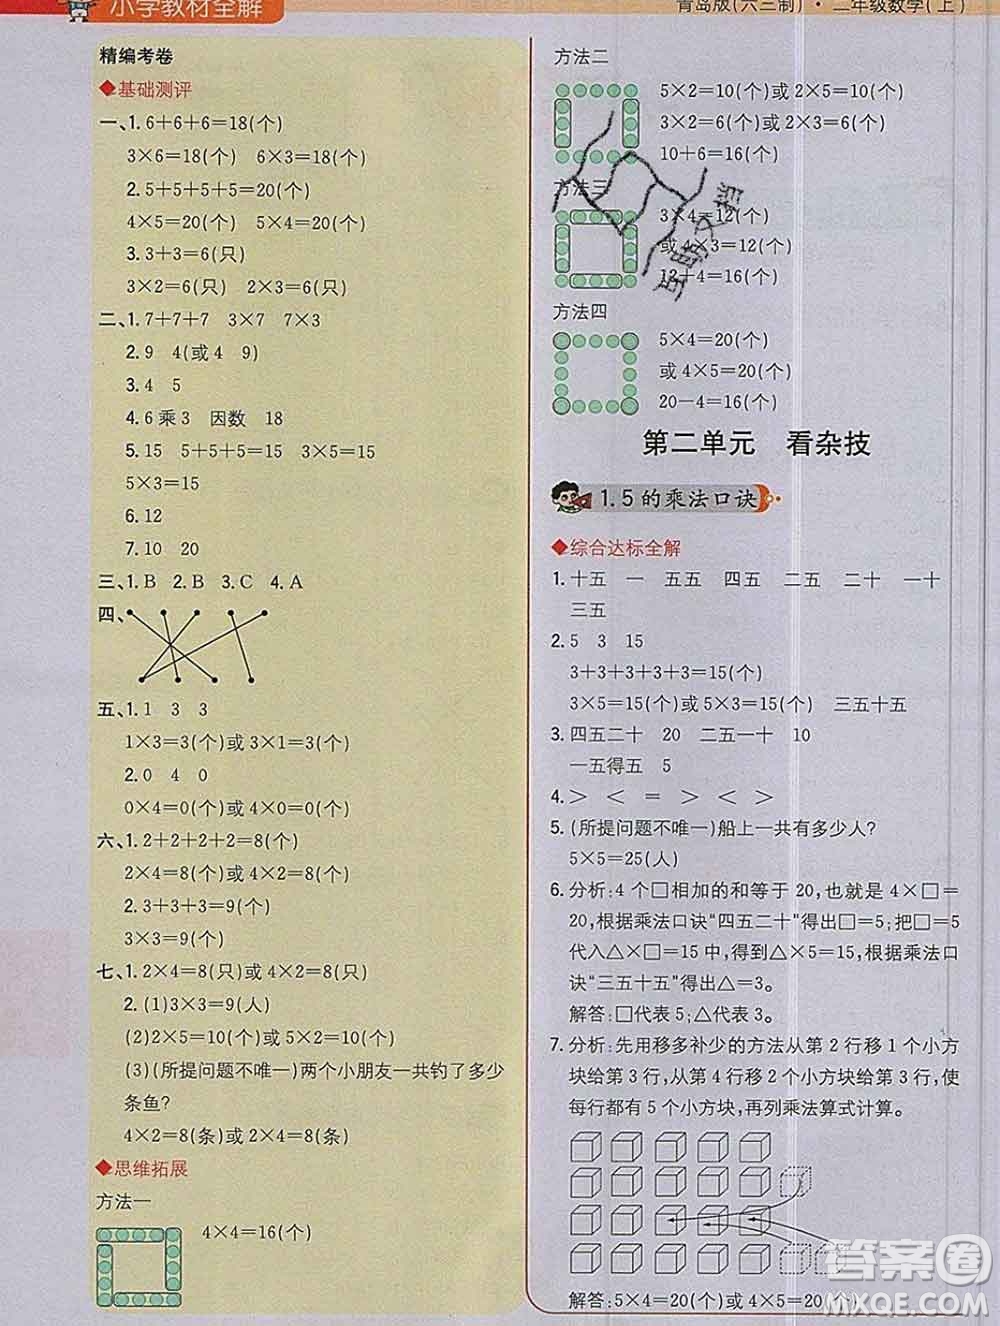 小学教材全解
青岛版(六三制)·二年级数学(上)
精编考卷
◆基础测评
一、1.6+6+6=18(个)
3×6=18(个) 6×3=18(个)
2.5+5+5+5=20(个)
4×5=20(个) 5×4=20(个)
3.3+3=6(只)
3×2=6(只) 2×3=6(只)
二、1.7+7+7 3×7 7×3
2.9 4(或4 9)
3.4 5
4.6乘3 因数 18
5.15 5+5+5=15 3×5=15
5×3=15
6.12
7.10 20
三、1.B 2.B 3.C 4.A
四、
五、1.1 3 3
1×3=3(个)或3×1=3(个)
2.0 4 0
0×4=0(个)或4×0=0(个)
六、1.2+2+2+2=8(个)
2×4=8(个)或4×2=8(个)
2.3+3+3=9(个)
3×3=9(个)
七、1.2×4=8(只)或4×2=8(只)
2.(1)3×3=9(人)
(2)2×5=10(个)或5×2=10(个)
(3)(所提问题不唯一)两个小朋友一共钓了多少
条鱼?
4×2=8(条)或2×4=8(条)
◆思维拓展
方法一
4×4=16(个)
方法二
5×2=10(个)或2×5=10(个)
3×2=6(个)或2×3=6(个)
10+6=16(个)
方法三
3×4=12(个)
或4×3=12(个)
12+4=16(个)
方法四
5×4=20(个)
或4×5=20(个)
20-4=16(个)
第二单元 看杂技
1.5的乘法口诀
◆综合达标全解
1.十五 一 五五 四五 二五 二十 一十
三五
2.5 3 15
3+3+3+3+3=15(个)
3×5=15(个)或5×3=15(个) 三五十五
3.四五二十 20 二五一十 10
一五得五 5
4.> < = > < >
5.(所提问题不唯一)船上一共有多少人?
5×5=25(人)
6.分析:4个□相加的和等于20,也就是4×□=
20,根据乘法口诀“四五二十”得出□=5;把□=5
代入△×□=15中,得到△×5=15,根据乘法口
诀“三五十五”得出△=3。
解答:□代表5;△代表3。
7.分析:先用移多补少的方法从第2行移1个小方
块给第3行,从第4行移2个小方块给第3行,使
每行都有5个小方块,再列乘法算式计算。
解答:5×4=20(个)或4×5=20(个)
答案圈
MXQE.COM